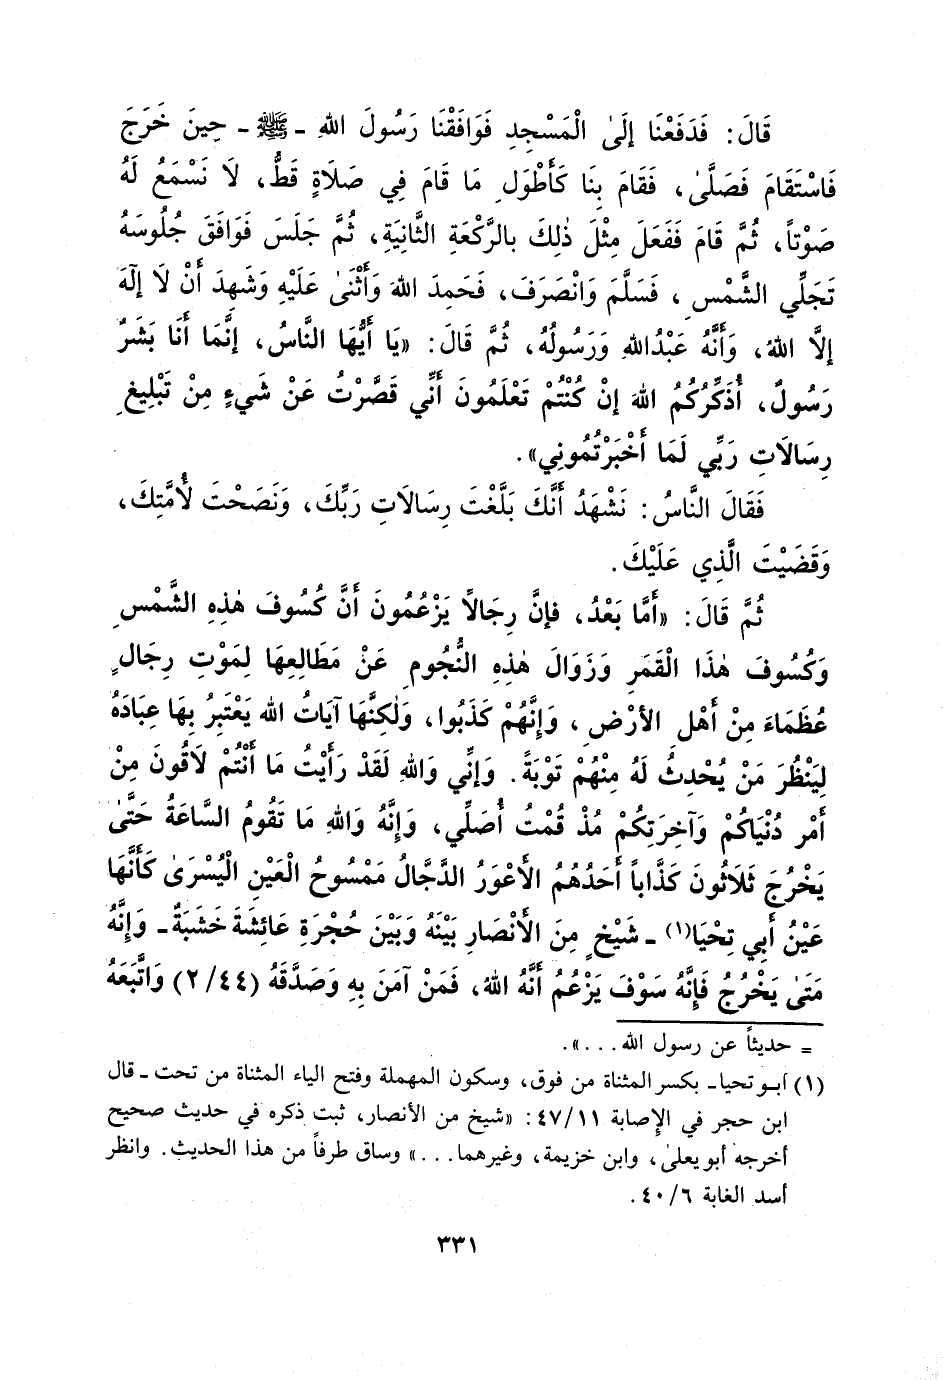 قَالَ: فَدَفَعْنَا إِلَىٰ الْمَسْجِدِ فَوَافَقْنَا رَسُولَ اللهِ - ﷺ - حِينَ خَرَجَ
فَاسْتَقَامَ فَصَلَّىٰ، فَقَامَ بِنَا كَأَطْوَلِ مَا قَامَ فِي صَلَاةٍ قَطُّ، لَا نَسْمَعُ لَهُ
صَوْتاً، ثُمَّ قَامَ فَفَعَلَ مِثْلَ ذٰلِكَ بِالرَّكْعَةِ الثَّانِيَةِ، ثُمَّ جَلَسَ فَوَافَقَ جُلُوسَهُ
تَجَلِّي الشَّمْسِ، فَسَلَّمَ وَانْصَرَفَ، فَحَمِدَ اللهَ وَأَثْنَىٰ عَلَيْهِ وَشَهِدَ أَنْ لَا إِلَهَ
إِلَّا اللهُ، وَأَنَّهُ عَبْدُاللهِ وَرَسُولُهُ، ثُمَّ قَالَ: «يَا أَيُّهَا النَّاسُ، إِنَّمَا أَنَا بَشَرٌ
رَسُولٌ، أُذَكِّرُكُمُ اللهَ إِنْ كُنْتُمْ تَعْلَمُونَ أَنِّي قَصَّرْتُ عَنْ شَيءٍ مِنْ تَبْلِيغِ
رِسَالَاتِ رَبِّي لَمَا أَخْبَرْتُمُونِي».
فَقَالَ النَّاسُ: نَشْهَدُ أَنَّكَ بَلَّغْتَ رِسَالَاتِ رَبِّكَ، وَنَصَحْتَ لأُمَّتِكَ،
وَقَضَيْتَ الَّذِي عَلَيْكَ.
ثُمَّ قَالَ: «أَمَّا بَعْدُ، فَإِنَّ رِجَالًا يَزْعُمُونَ أَنَّ كُسُوفَ هٰذِهِ الشَّمْسِ
وَكُسُوفَ هٰذَا الْقَمَرِ وَزَوَالَ هٰذِهِ النُّجُومِ عَنْ مَطَالِعِهَا لِمَوْتِ رِجَالٍ
عُظَمَاءَ مِنْ أَهْلِ الأَرْضِ، وَإِنَّهُمْ كَذَبُوا، وَلٰكِنَّهَا آيَاتُ اللهِ يَعْتَبِرُ بِهَا عِبَادَهُ
لِيَنْظُرَ مَنْ يُحْدِثُ لَهُ مِنْهُمْ تَوْبَةً. وَإِنِّي وَاللهِ لَقَدْ رَأَيْتُ مَا أَنْتُمْ لَاقُونَ مِنْ
أَمْرِ دُنْيَاكُمْ وَآخِرَتِكُمْ مُذْ قُمْتُ أُصَلِّي، وَإِنَّهُ وَاللهِ مَا تَقُومُ السَّاعَةُ حَتَّىٰ
يَخْرُجَ ثَلَاثُونَ كَذَّاباً أَحَدُهُمُ الأَعْوَرُ الدَّجَّالُ مَمْسُوحُ الْعَيْنِ الْيُسْرَىٰ كَأَنَّهَا
عَيْنُ أَبِي تِحْيَا(١) - شَيْخٍ مِنَ الأَنْصَارِ بَيْنَهُ وَبَيْنَ حُجْرَةِ عَائِشَةَ خَشَبَةٌ - وَإِنَّهُ
مَتَىٰ يَخْرُجُ فَإِنَّهُ سَوْفَ يَزْعُمُ أَنَّهُ اللهُ، فَمَنْ آمَنَ بِهِ وَصَدَّقَهُ (٢/٤٤) وَاتَّبَعَهُ
= حديثاً عن رسول الله ...».
(١) أبو تحيا - بكسر المثناة من فوق، وسكون المهملة وفتح الياء المثناة من تحت - قال
ابن حجر في الإصابة ٤٧/١١: «شيخ من الأنصار، ثبت ذكره في حديث صحيح
أخرجه أبو يعلىٰ، وابن خزيمة، وغيرهما...» وساق طرفاً من هذا الحديث. وانظر
أسد الغابة ٤٠/٦.
٣٣١